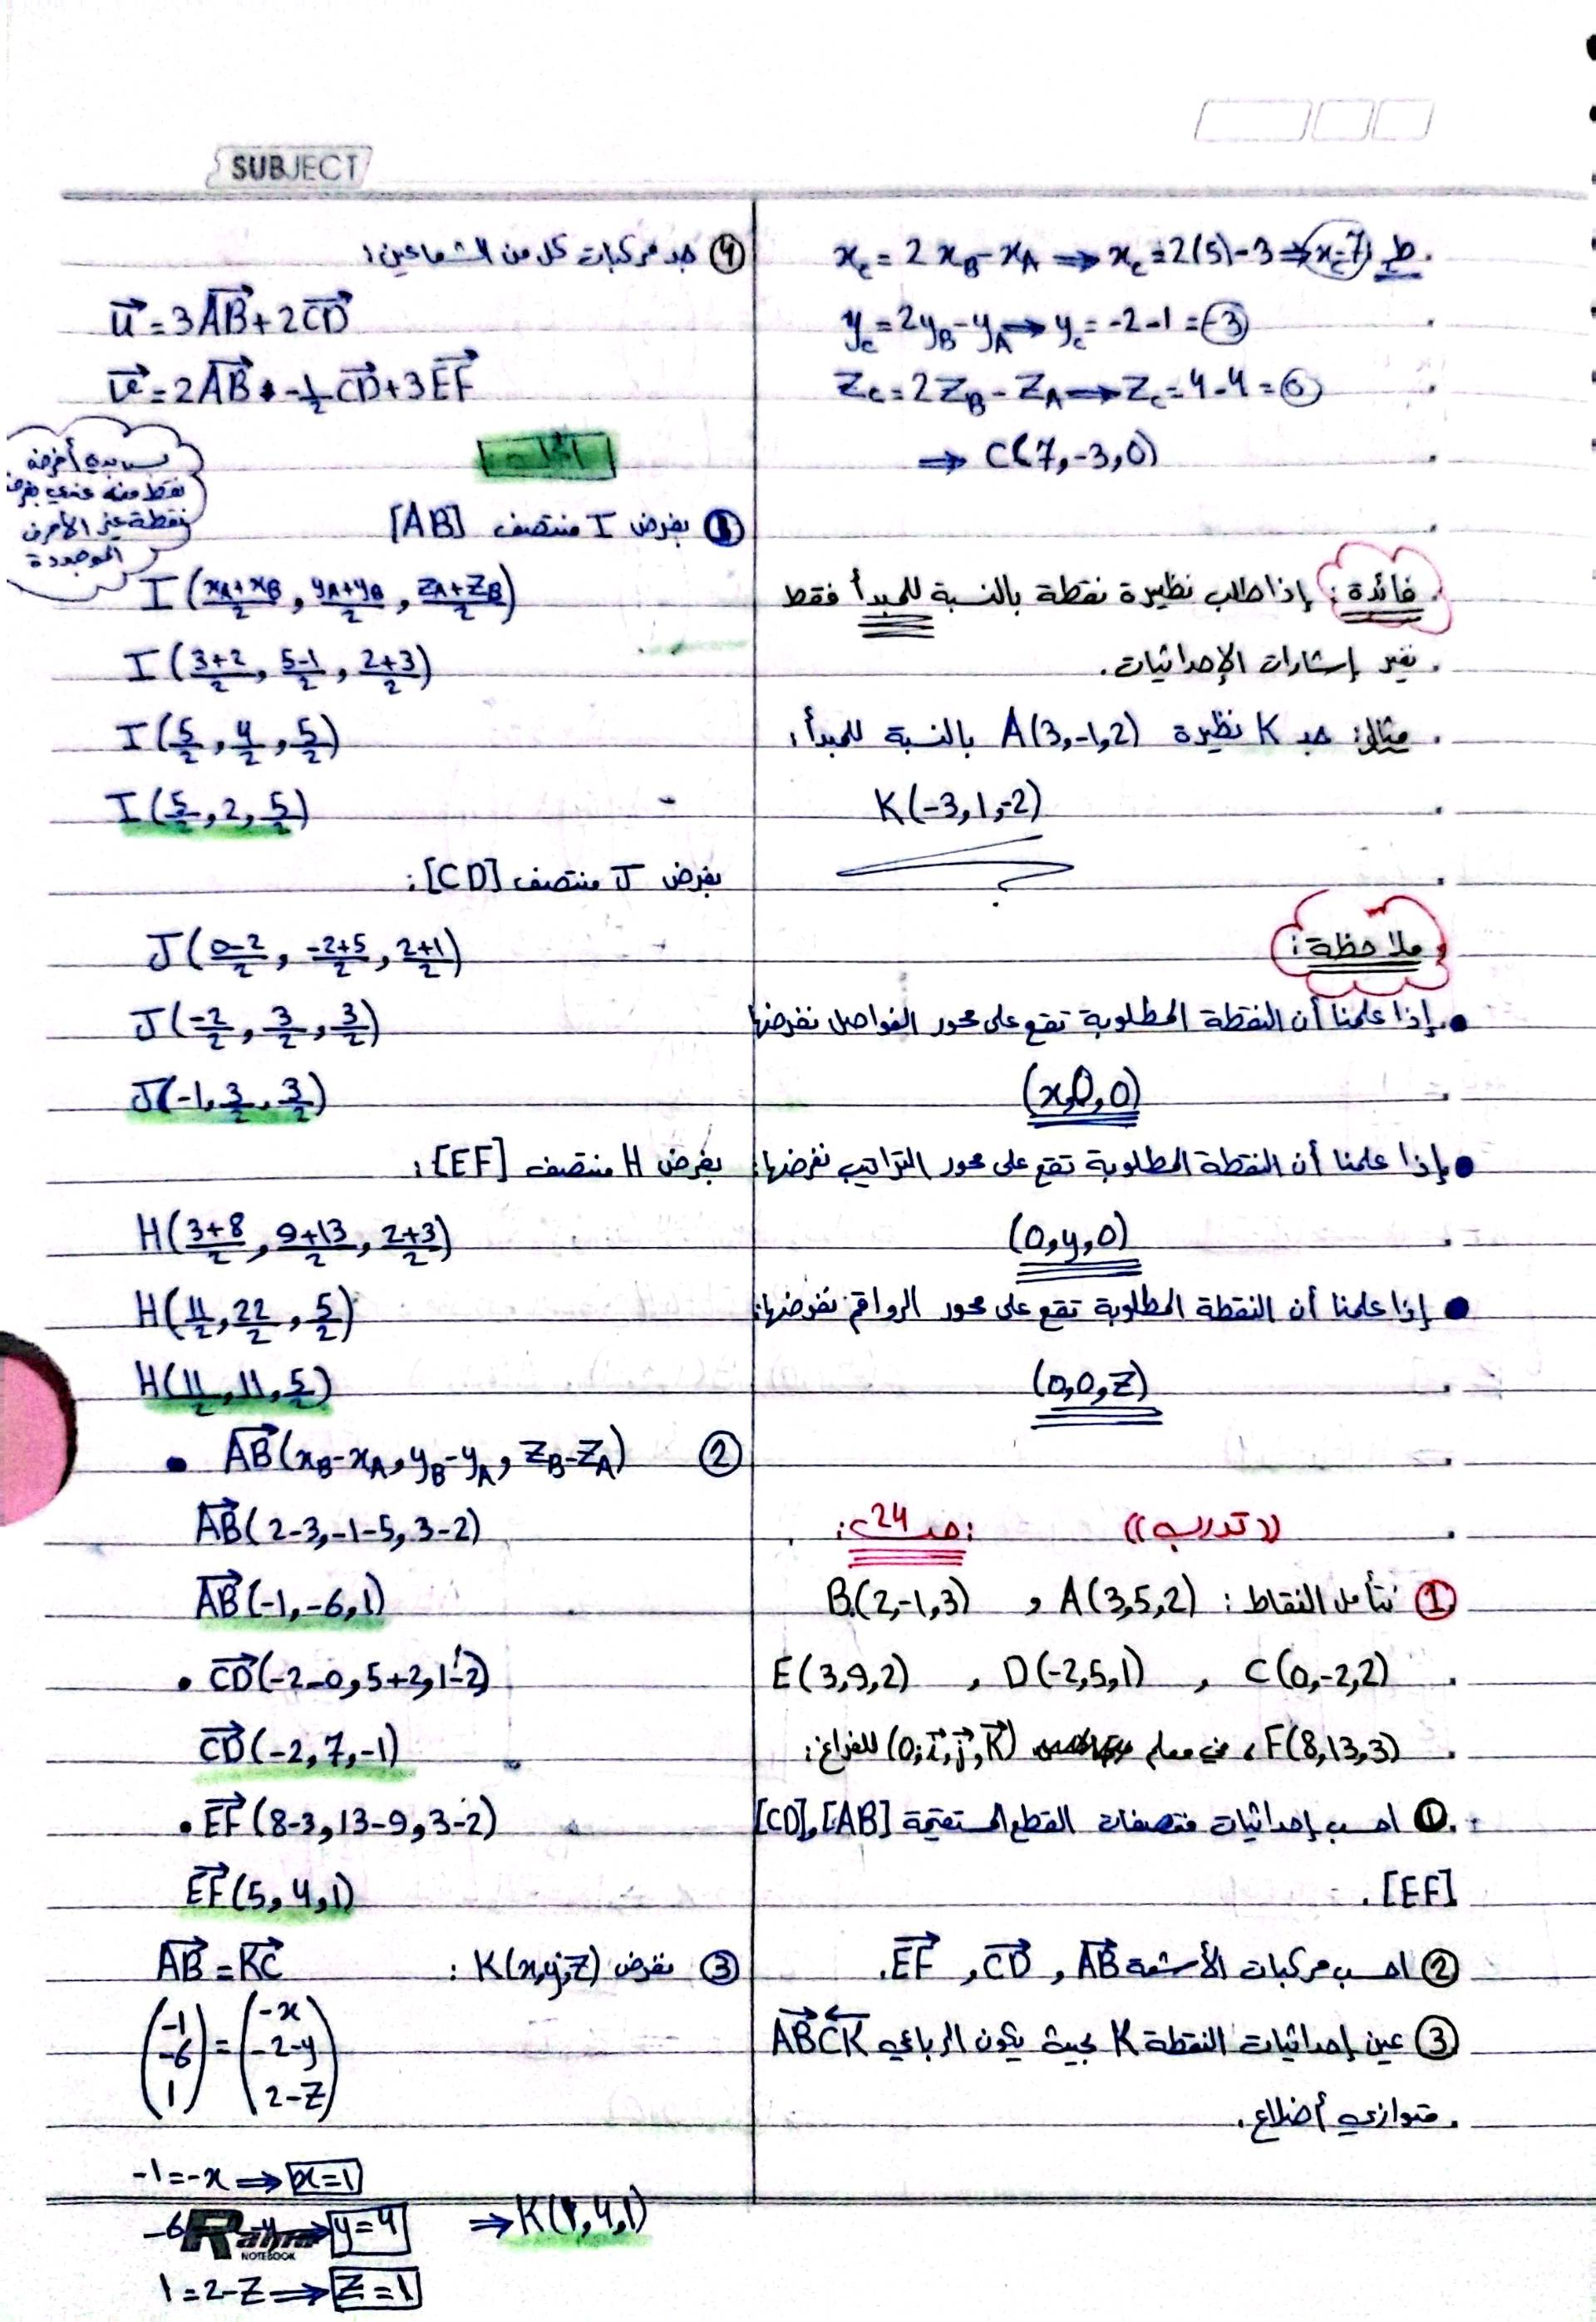 SUBJECT
ط x_c = 2x_B - x_A ⇒ x_c = 2(5)-3 ⇒ x_c=7
y_c = 2y_B - y_A ⇒ y_c = -2-1 = -3
Z_c = 2Z_B - Z_A ⇒ Z_c = 4-4 = 0
⇒ C(7,-3,0)
فائدة: إذا طلب نظيرة نقطة بالنسبة للمبدأ فقط
نغير إشارات الإحداثيات.
مثال: جد K نظيرة A(3,-1,2) بالنسبة للمبدأ:
K(-3,1,-2)
ملاحظة:
• إذا علمنا أن النقطة المطلوبة تقع على محور الفواصل نفرضها
(x,0,0)
• إذا علمنا أن النقطة المطلوبة تقع على محور التراتيب نفرضها:
(0,y,0)
• إذا علمنا أن النقطة المطلوبة تقع على محور الرواقم نفرضها:
(0,0,Z)
((تدرب)) صـ24ـ:
① نتأمل النقاط: A(3,5,2) , B(2,-1,3)
C(0,-2,2) , D(-2,5,1) , E(3,9,2)
F(8,13,3) ، في معلم (0;i→,j→,K→) للفراغ:
① احسب إحداثيات منتصفات القطع المستقيمة [AB],[CD]
[EF].
② احسب مركبات الأشعة AB→ , CD→ , EF→.
③ عين إحداثيات النقطة K بحيث يكون الرباعي ABCK
متوازي أضلاع.
④ جد مركبات كل من الشعاعين:
u→ = 3AB→ + 2CD→
v→ = 2AB→ - 1/2 CD→ + 3EF→
الحل
بس بدي أفرض
نقطة من عندي بفرض
نقطة غير الأحرف
الموجودة
① بفرض I منتصف [AB]
I((x_A+x_B)/2, (y_A+y_B)/2, (Z_A+Z_B)/2)
I((3+2)/2, (5-1)/2, (2+3)/2)
I(5/2, 4/2, 5/2)
I(5/2, 2, 5/2)
بفرض J منتصف [CD]:
J((0-2)/2, (-2+5)/2, (2+1)/2)
J(-2/2, 3/2, 3/2)
J(-1, 3/2, 3/2)
بفرض H منتصف [EF]:
H((3+8)/2, (9+13)/2, (2+3)/2)
H(11/2, 22/2, 5/2)
H(11/2, 11, 5/2)
② • AB→(x_B-x_A, y_B-y_A, Z_B-Z_A)
AB→(2-3,-1-5,3-2)
AB→(-1,-6,1)
• CD→(-2-0,5+2,1-2)
CD→(-2,7,-1)
• EF→(8-3,13-9,3-2)
EF→(5,4,1)
③ نفرض K(x,y,Z) : AB→ = KC→
(-1, -6, 1) = (-x, -2-y, 2-Z)
-1=-x ⇒ x=1
-6 -y ⇒ y=4 ⇒ K(1,4,1)
Rahma
NOTEBOOK
1=2-Z ⇒ Z=1